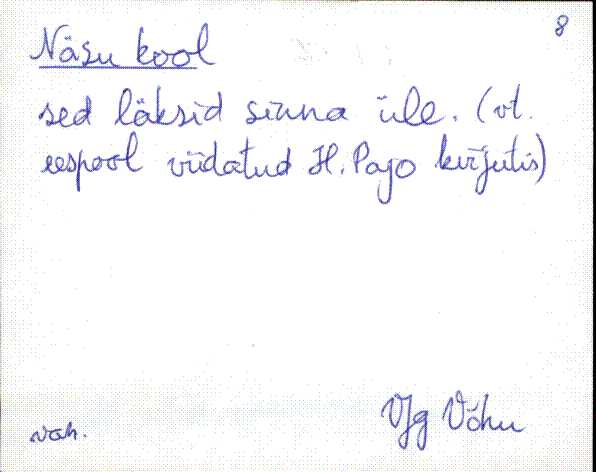 8
Näsu kool
sed läksid sinna üle. (vt.
eespool viidatud H. Pajo kirjutis)
Vjg Võhu
vah.